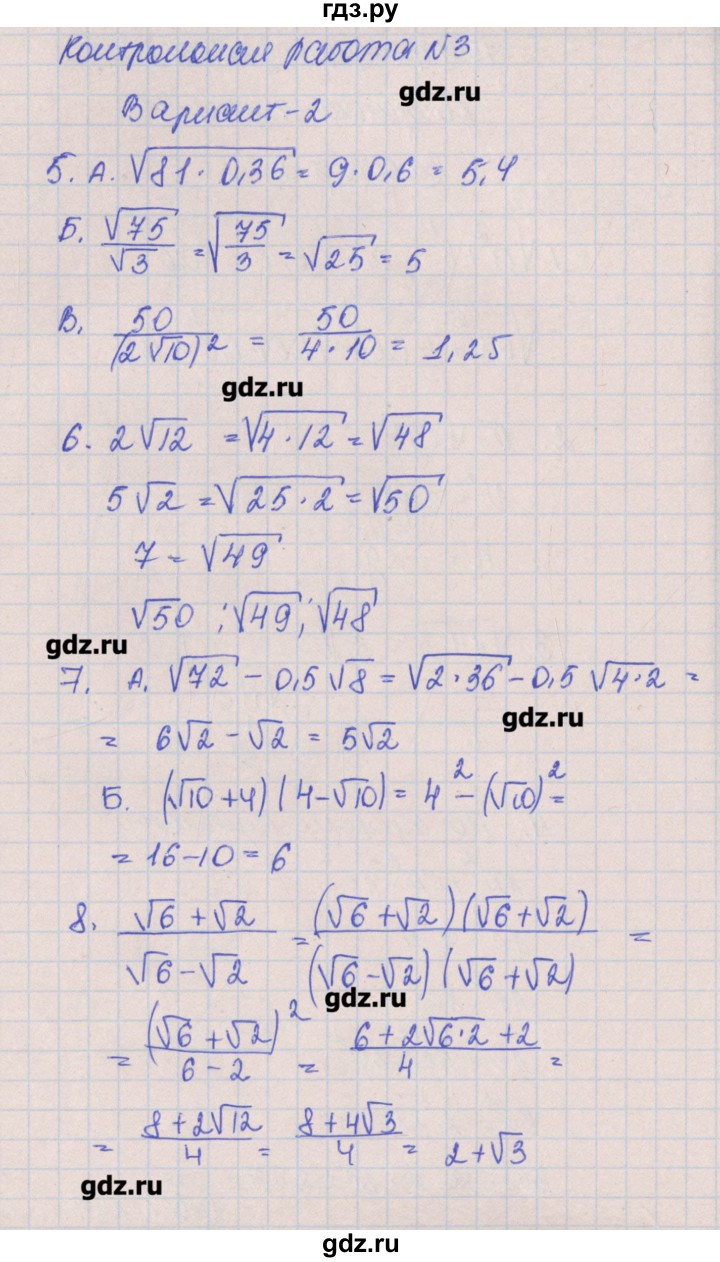 гдз.ру
Контрольная работа №3
gdz.ru
Вариант-2
5. А. √(81·0,36) = 9·0,6 = 5,4
Б. √75/√3 = √(75/3) = √25 = 5
В. 50/(2√10)² = 50/(4·10) = 1,25
gdz.ru
6. 2√12 = √(4·12) = √48
5√2 = √(25·2) = √50
7 = √49
√50 ; √49 ; √48
gdz.ru
7. А. √72 − 0,5√8 = √(2·36) − 0,5√(4·2) =
gdz.ru
= 6√2 − √2 = 5√2
Б. (√10+4)(4−√10) = 4² − (√10)² =
= 16−10 = 6
8. (√6+√2)/(√6−√2) = (√6+√2)(√6+√2)/(√6−√2)(√6+√2) =
gdz.ru
= (√6+√2)²/(6−2) = (6+2√(6·2)+2)/4 =
= (8+2√12)/4 = (8+4√3)/4 = 2+√3
gdz.ru
gdz.ru